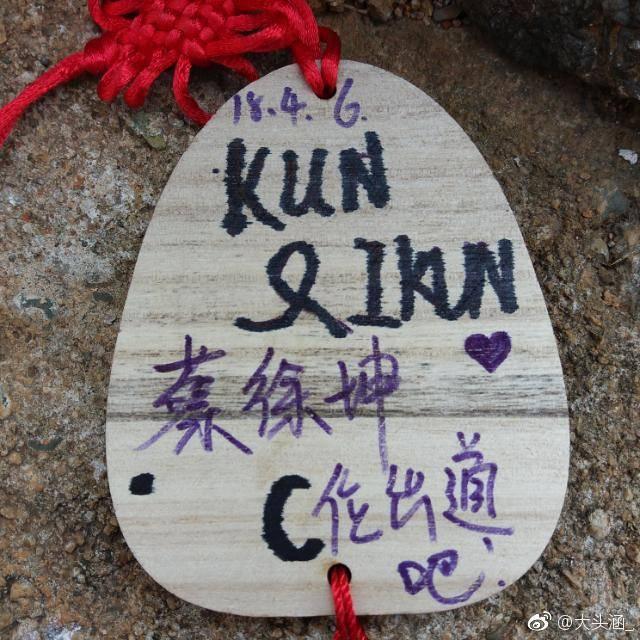 18.4.6.
KUN
& IKUN
蔡徐坤 ♥
· C位出道
吧!
@大头涵